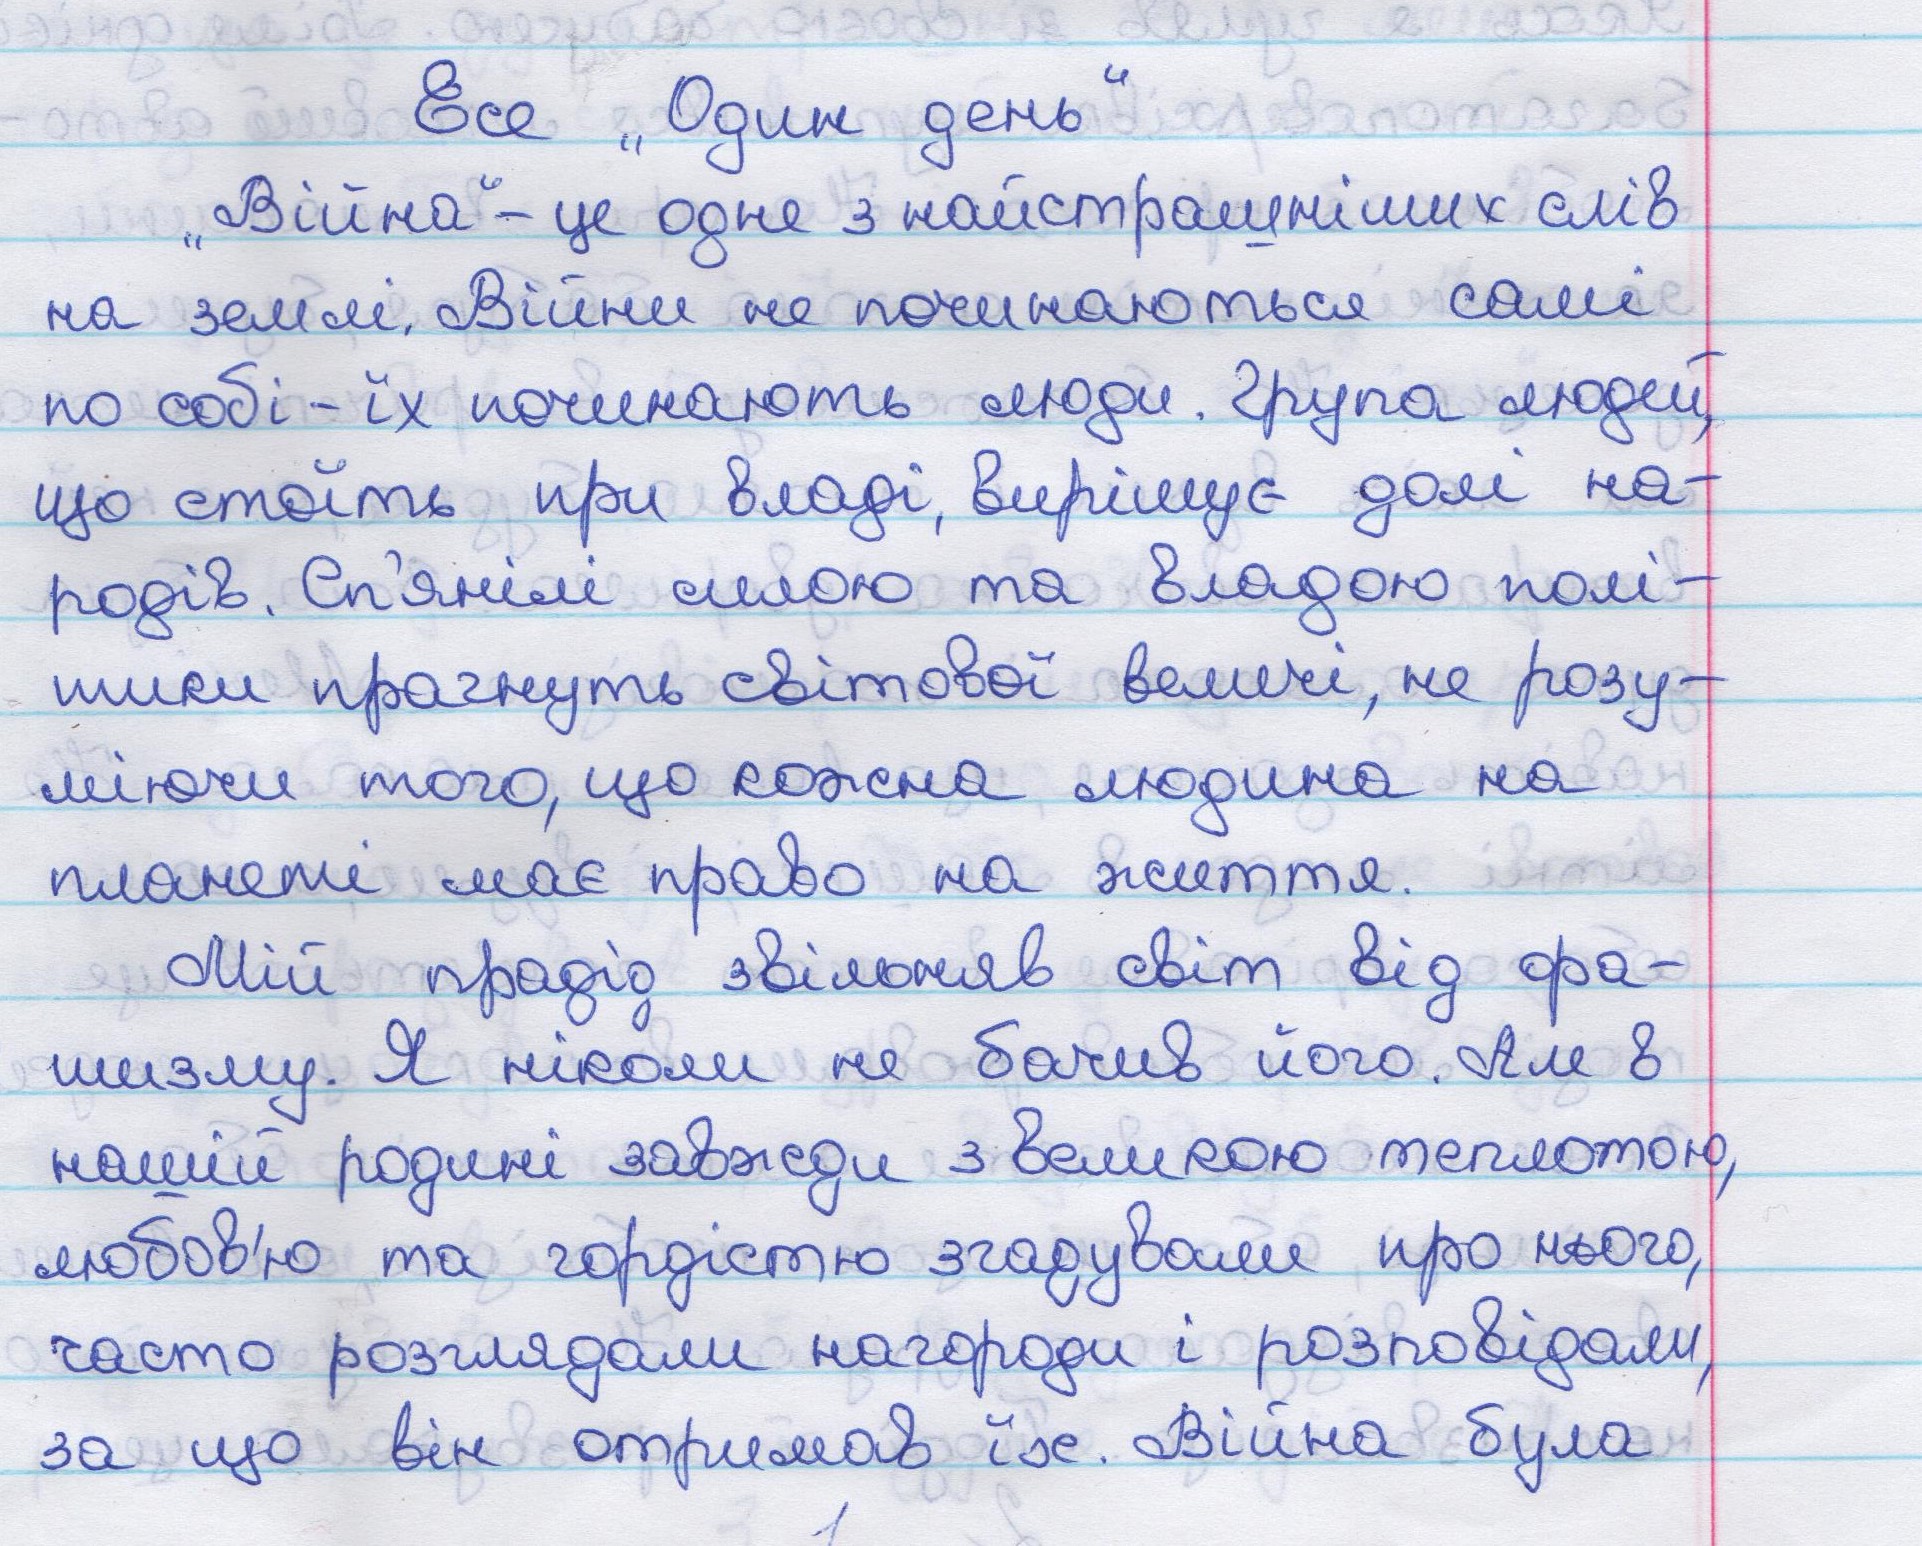 Есе „Один день“
„Війна“ – це одне з найстрашніших слів
на землі. Війни не починаються самі
по собі – їх починають люди. Група людей,
що стоїть при владі, вирішує долі на-
родів. Сп'янілі силою та владою полі-
тики прагнуть світової величі, не розу-
міючи того, що кожна людина на
планеті має право на життя.
Мій прадід звільняв світ від фа-
шизму. Я ніколи не бачив його. Але в
нашій родині завжди з великою теплотою,
любов'ю та гордістю згадували про нього,
часто розглядали нагороди і розповідали,
за що він отримав їх. Війна була
1